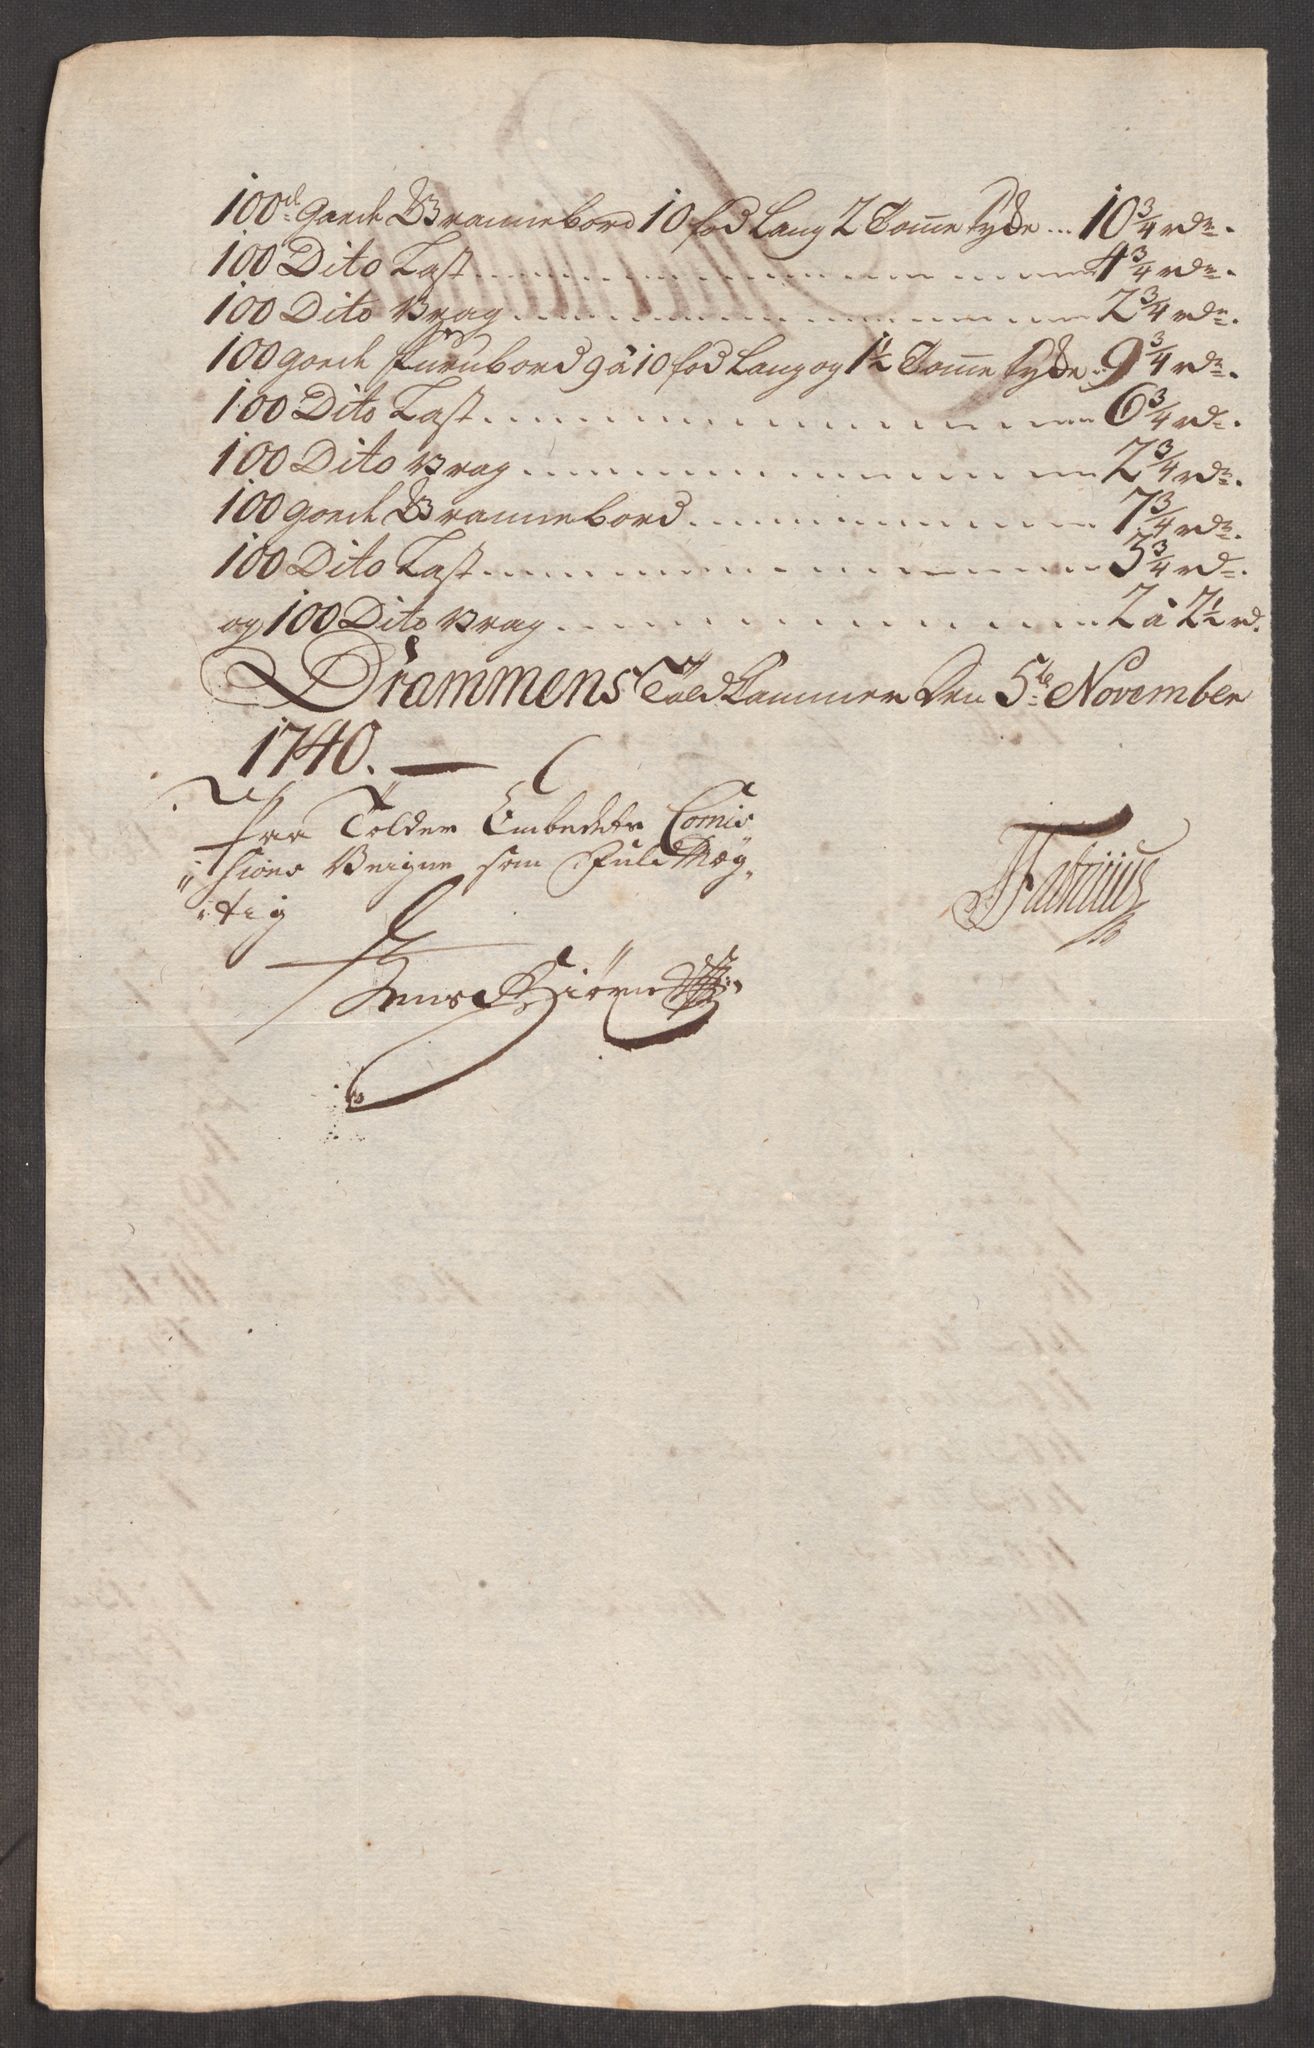 100de Goede Grannebord 10 fod Lang 2 Tom̅e tyke ... 10 3/4 rdr.
100 Dito Last 4 3/4 rdr.
100 Dito Vrag 2 3/4 rdr.
100 goede furubord 9 à 10 fod Lang og 1½ Tom̅e tyke 9 3/4 rdr.
100 Dito Last 6 3/4 rdr.
100 Dito Vrag 2 3/4 rdr.
100 goede Grannebord 7 3/4 rdr.
100 Dito Last 5 3/4 rdr.
og 100 Dito Vrag 2 à 2½ rd.
Drammens Told Kammer den 5te November
1740.
Paa Tolder Embedets Comis
sions Veigne som Fuld Mæg
tig
Jens Biørn
Fabritius